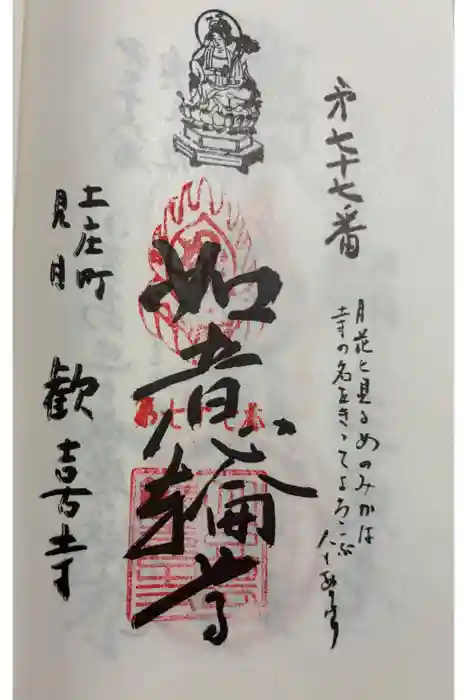 㐧七十七番
月花と見るめのみかは
寺の名をきゝてよろこぶ
如意輪尊
第七十七番
土庄町
見目
歡喜寺